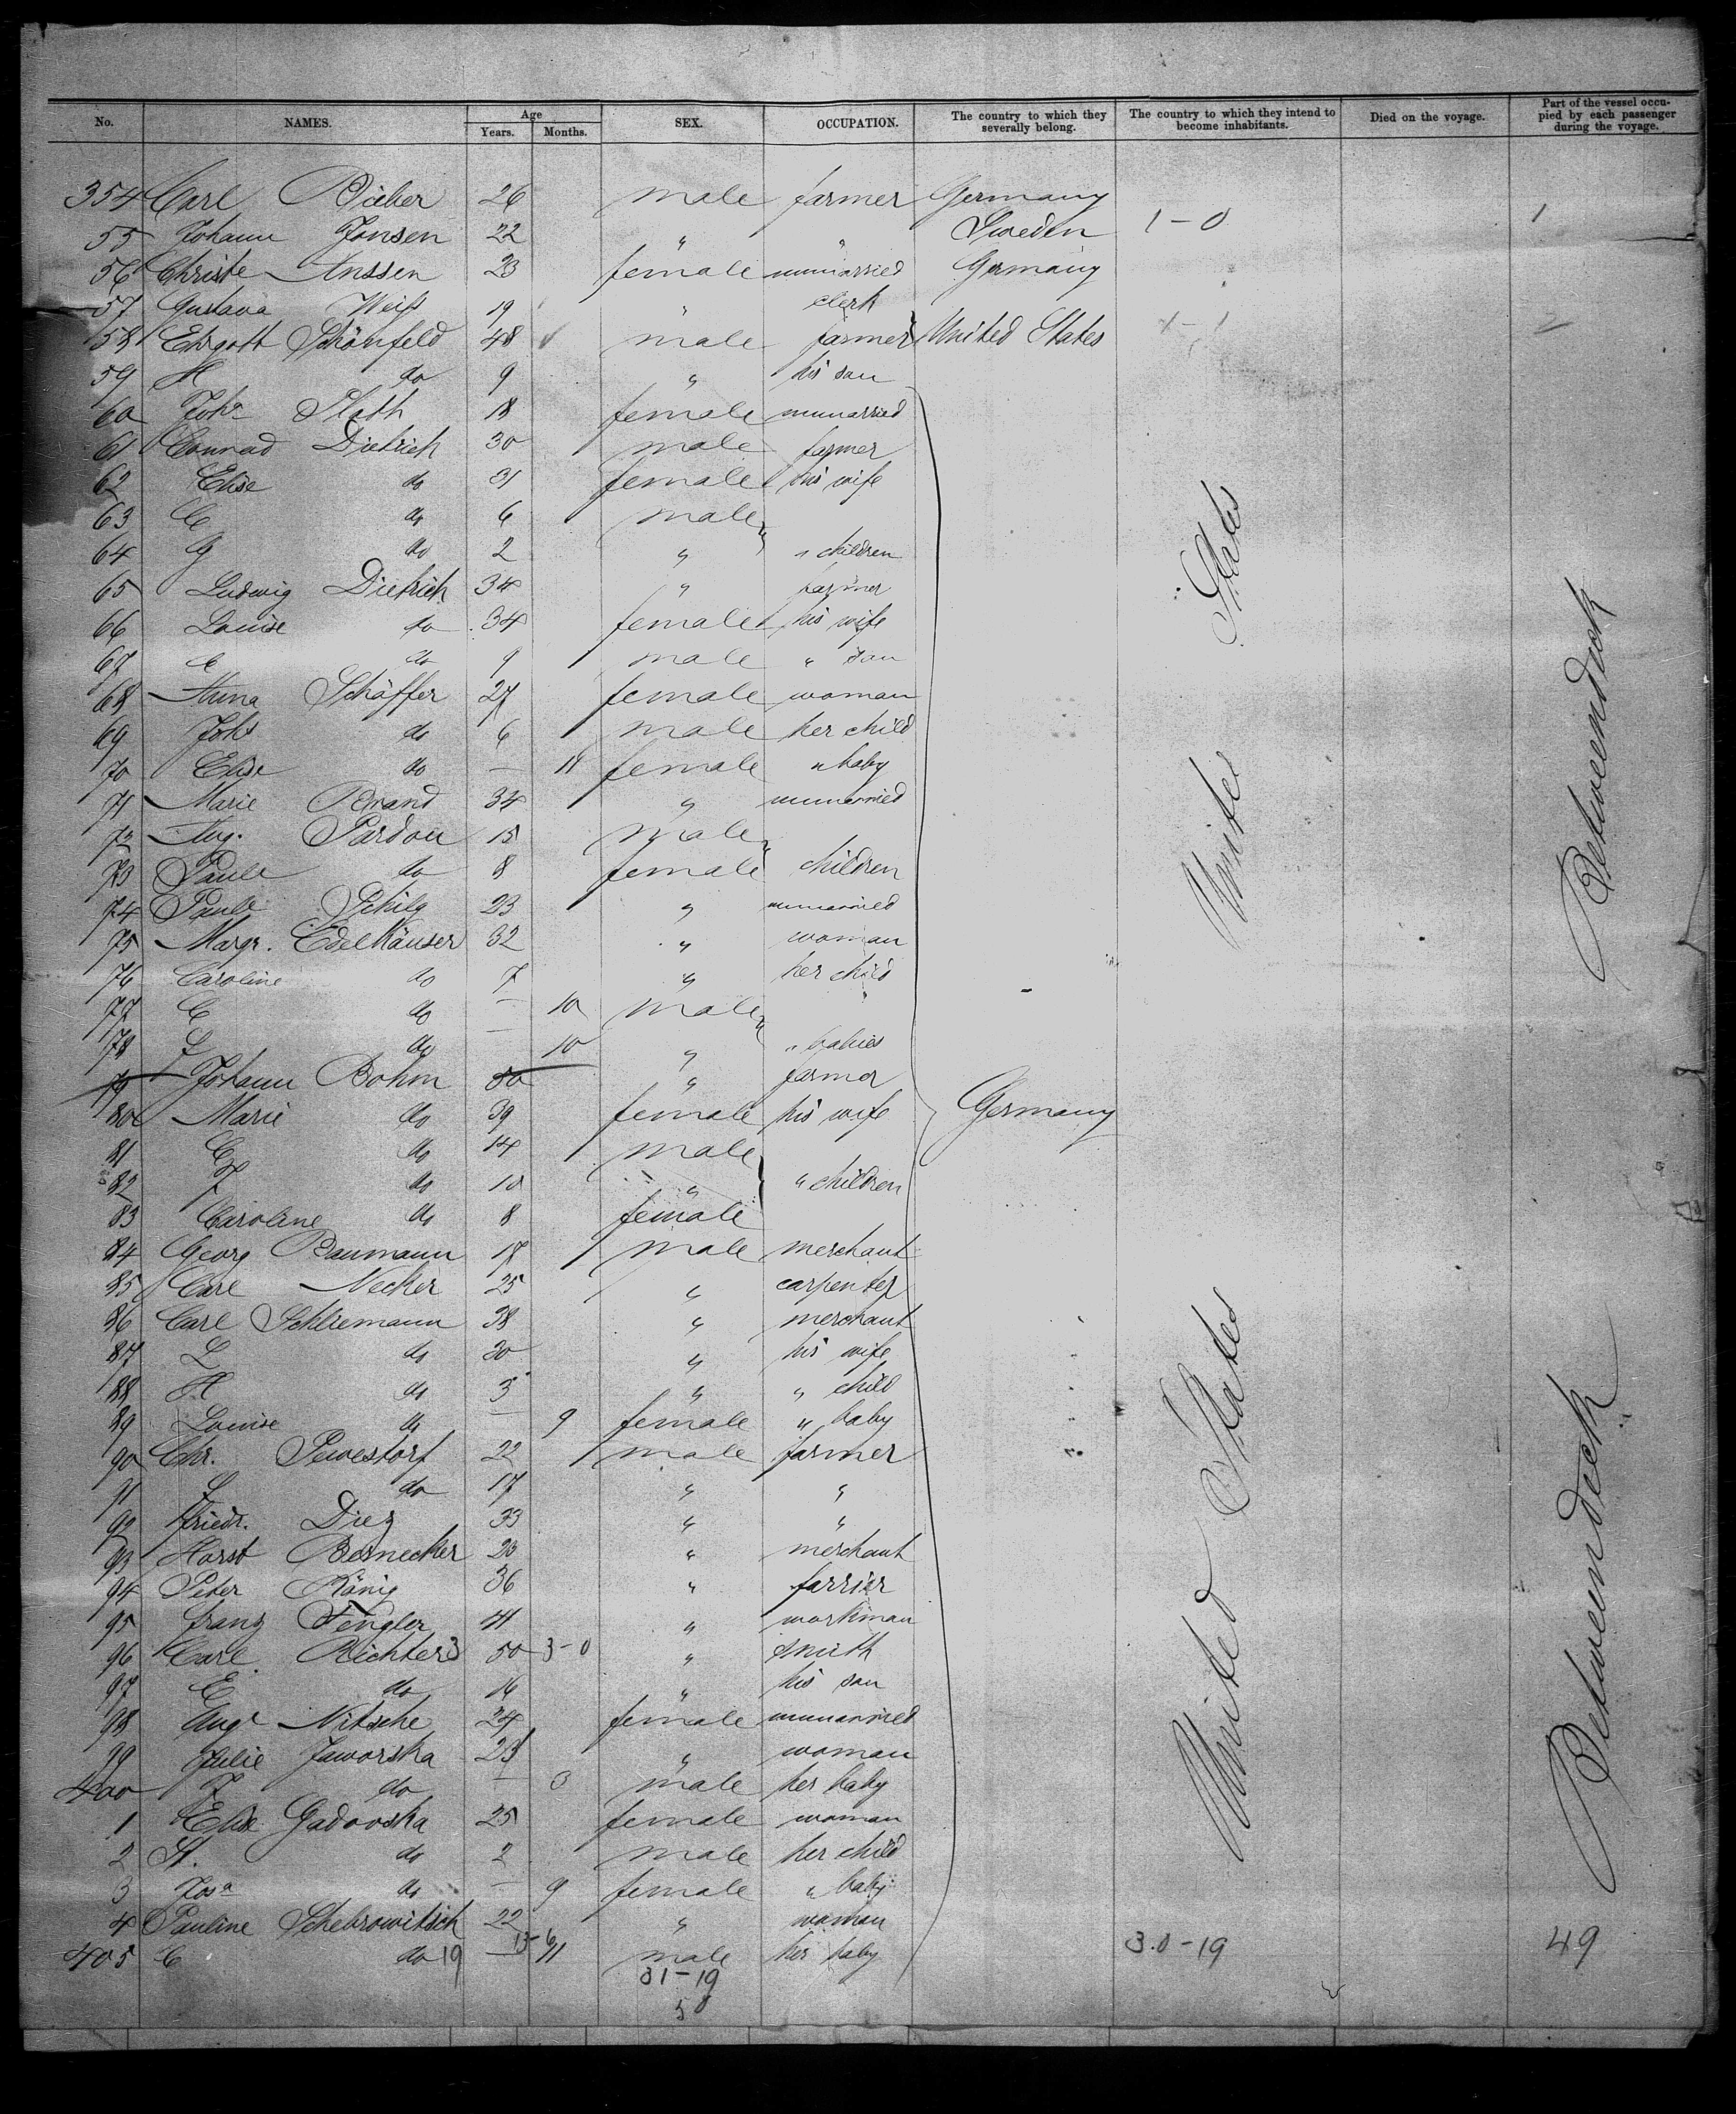 No. NAMES. Age Years. Months. SEX. OCCUPATION. The country to which they severally belong. The country to which they intend to become inhabitants. Died on the voyage. Part of the vessel occupied by each passenger during the voyage.
354 Carl Bieber 26 male farmer Germany
55 Johann Jonsen 22 " " Sweden 1-0 1
56 Christe Anssen 23 female unmarried Germany
57 Gustava Weiß 19 " clerk
58 Ehrgott Schönfeld 48 male farmer United States 1-1 2
59 H do 9 " his son
60 Joha Slath 18 female unmarried
61 Conrad Dietrich 30 male farmer
62 Elise do 31 female his wife
63 C do 6 male
64 G do 2 " " children
65 Ludwig Dietrich 34 " farmer
66 Louise do 34 female his wife
67 C do 9 male " son
68 Anna Schäffer 27 female woman
69 Johs do 6 male her child
70 Elise do — 11 female " baby
71 Marie Brand 34 " unmarried
72 Aug. Pardon 15 male
73 Paule do 8 female children
74 Paule Schilg 23 " unmarried
75 Margr. Edelhäuser 32 " woman
76 Caroline do 7 " her child
77 C do — 10 male
78 L do — 10 " " babies
79 Johann Bohm 50 " farmer
80 Marie do 39 female his wife Germany
81 C do 14 male
82 F do 10 " " children
83 Caroline do 8 female
84 Georg Baumann 17 male merchant
85 Carl Necker 25 " carpenter
86 Carl Schliemann 38 " merchant
87 L do 30 " his wife
88 H do 3 " " child
89 Louise do — 9 female " baby
90 Chr. Pewestorf 22 male farmer
91 L do 17 " "
92 Friedr. Diez 33 " "
93 Horst Bernecker 23 " merchant
94 Peter König 36 " farrier
95 Franz Fengler 41 " workman
96 Carl Richter 3 50 3-0 " smith
97 E do 16 " his son
98 Auge Nitsche 24 female unmarried
99 Julie Jaworska 23 " woman
400 J do — 3 male her baby
1 Elise Gadovska 25 female woman
2 St. do 2 male her child
3 Josa do — 9 female " baby
4 Pauline Schebrowitsch 22 " woman
405 C do 19 — 13-6 11 male her baby 30-19 49
31-19
50
United States
United States
Betweendeck
Betweendeck